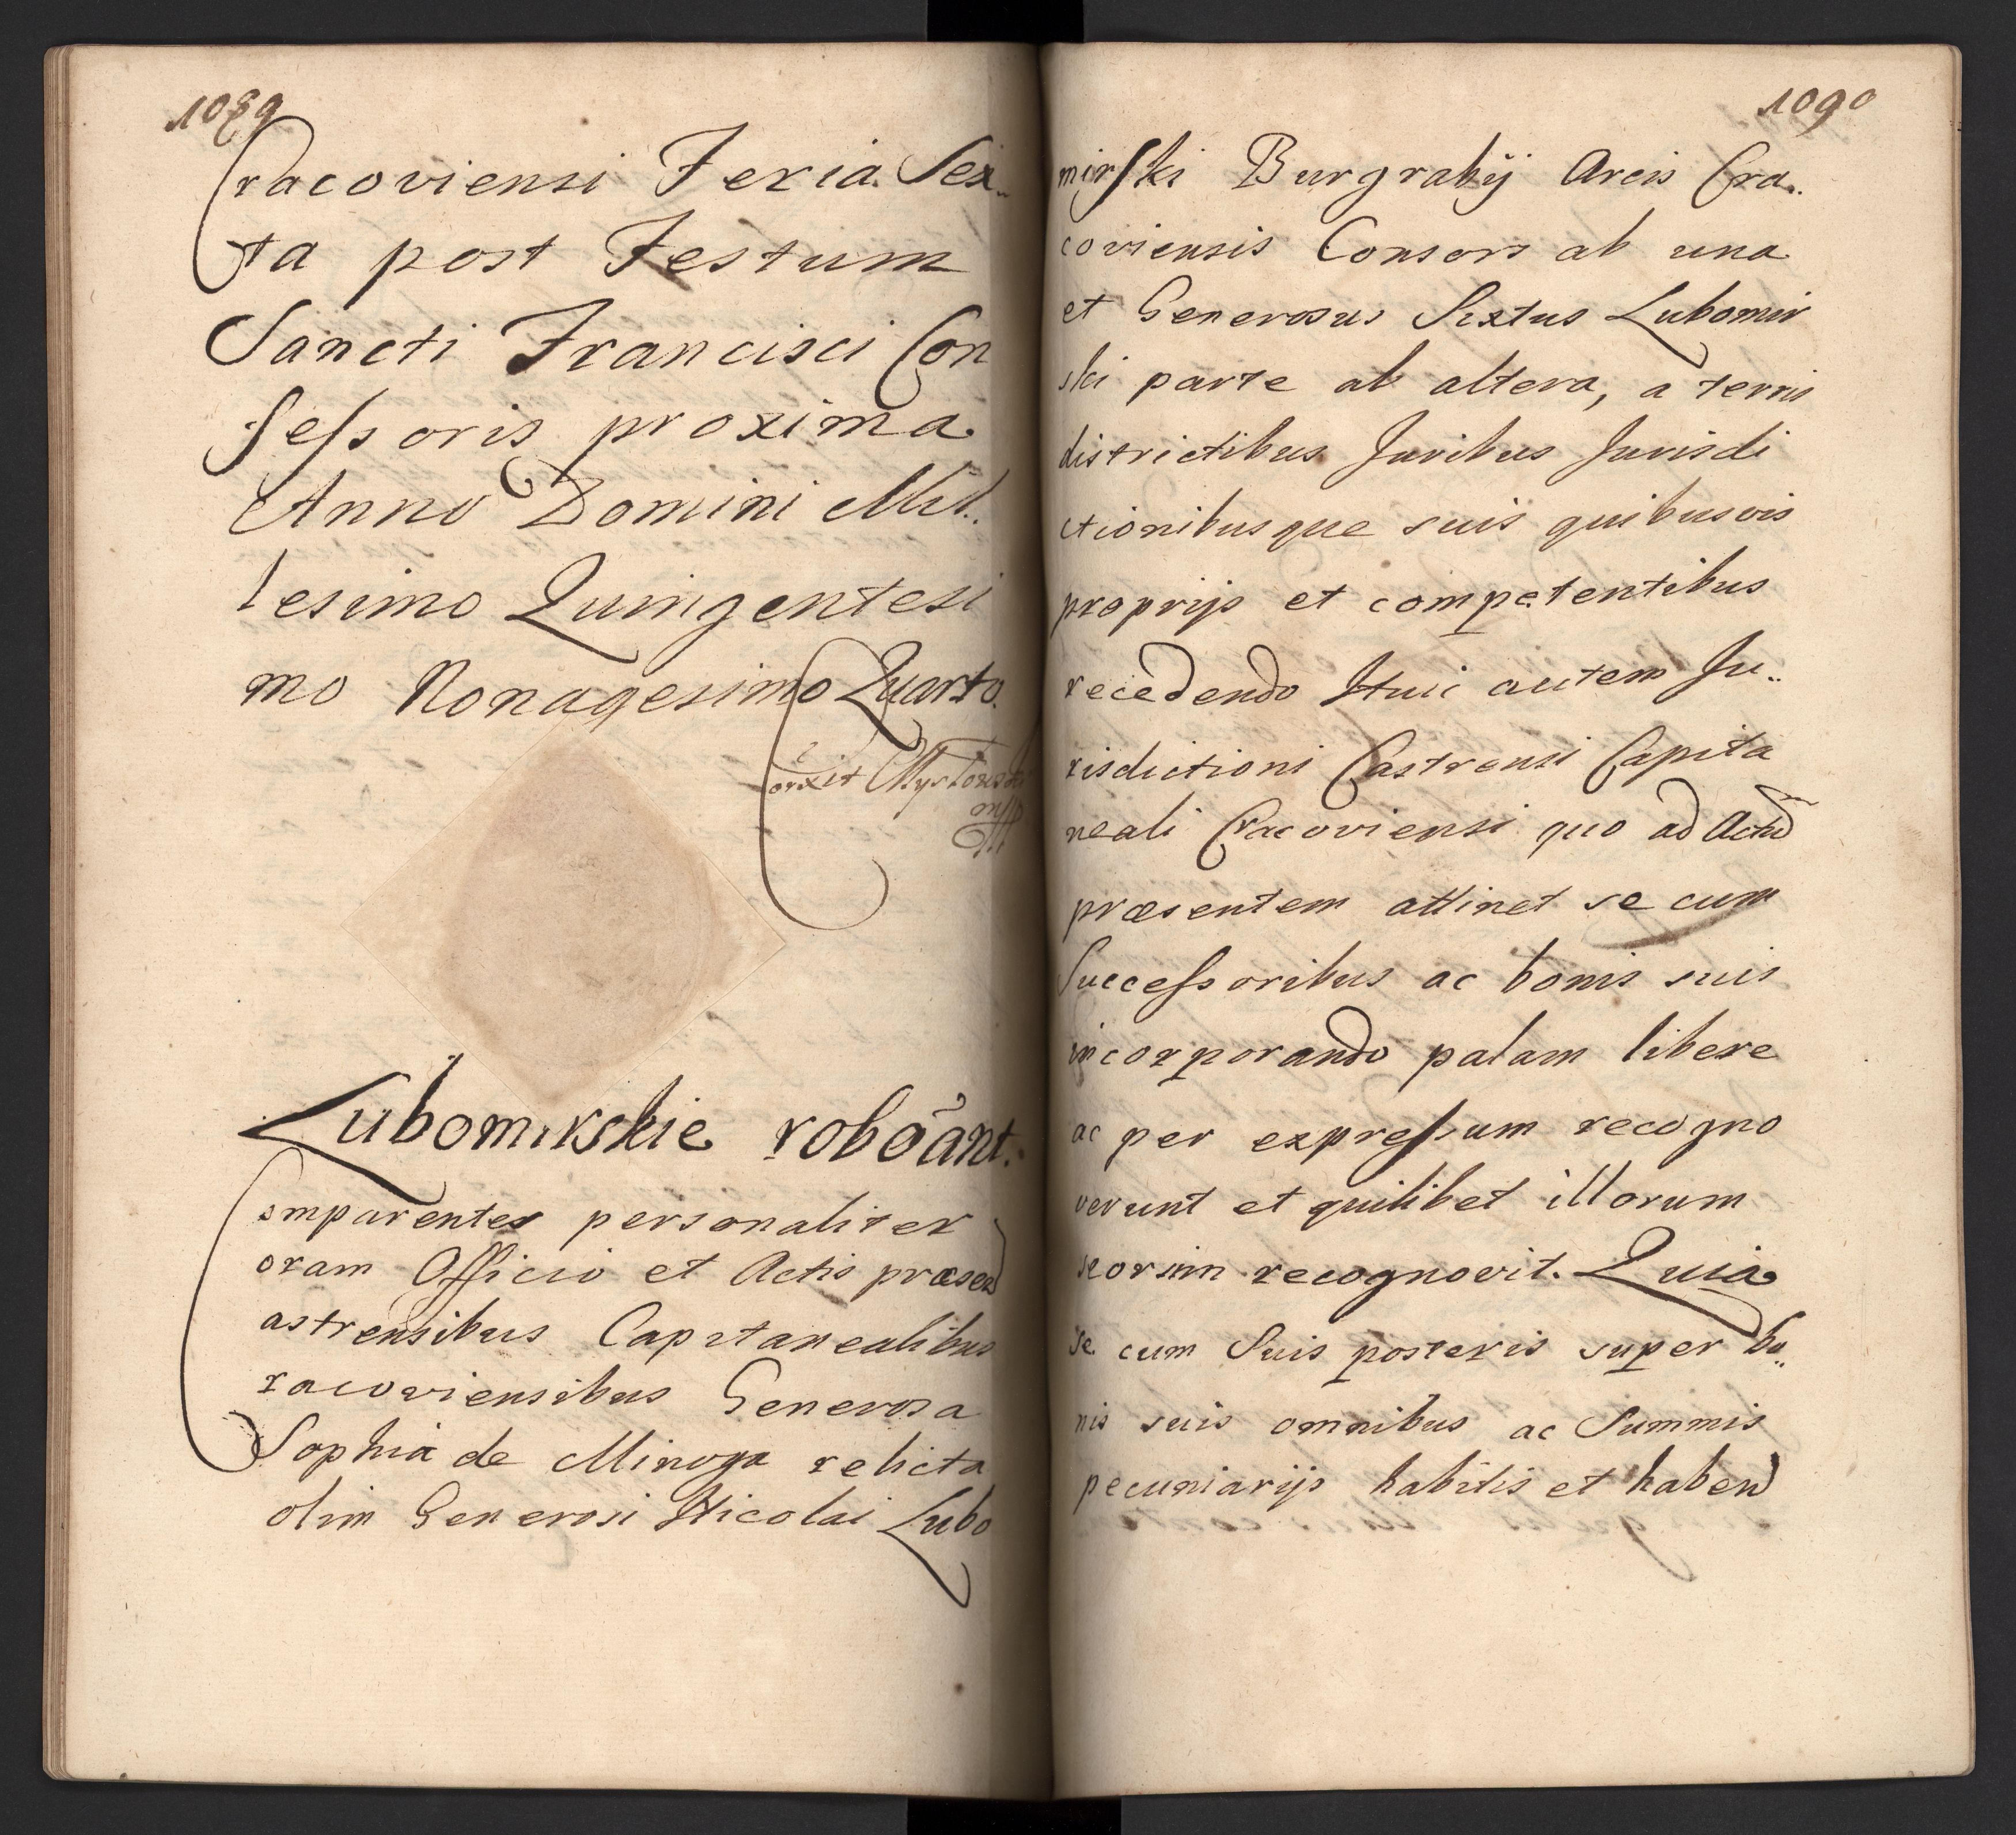 1089
Cracoviensi Feria Sex..
ta post Festum
Sancti Francisci Con
feſsoris proxima
Anno Domini Mil..
lesimo Quingentesi
mo Nonagesimo Quarto.
Corxit
mp
Lubomirskie roboãnt.
Comparentes personaliter
coram Officio et Actis præsen
Castrensibus Capitanealibus
Cracoviensibus Generosa
Sophia de Minoga relicta
olim Generosi Nicolai Lubo
1090
mirſki Burgrabÿ Arcis Cra..
coviensis Consors ab una
et Generosus Sixtus Lubomir
ski parte ab altera, a terris
districtibus Juribus Jurisdi
ctionibusque suis quibusvis
proprijs et competentibus
recedendo Huic autem Ju..
risdictioni Castrensi Capita
neali Cracoviensi quo ad Actũ
præsentem attinet se cum
Succeſsoribus ac bonis suis
incorporando palam libere
ac per expreſsum recogno
verunt et quilibet illorum
seorsim recognovit. Quia
se cum Suis posteris super bo..
nis suis omnibus ac Summis
pecuniarijs habitis et haben